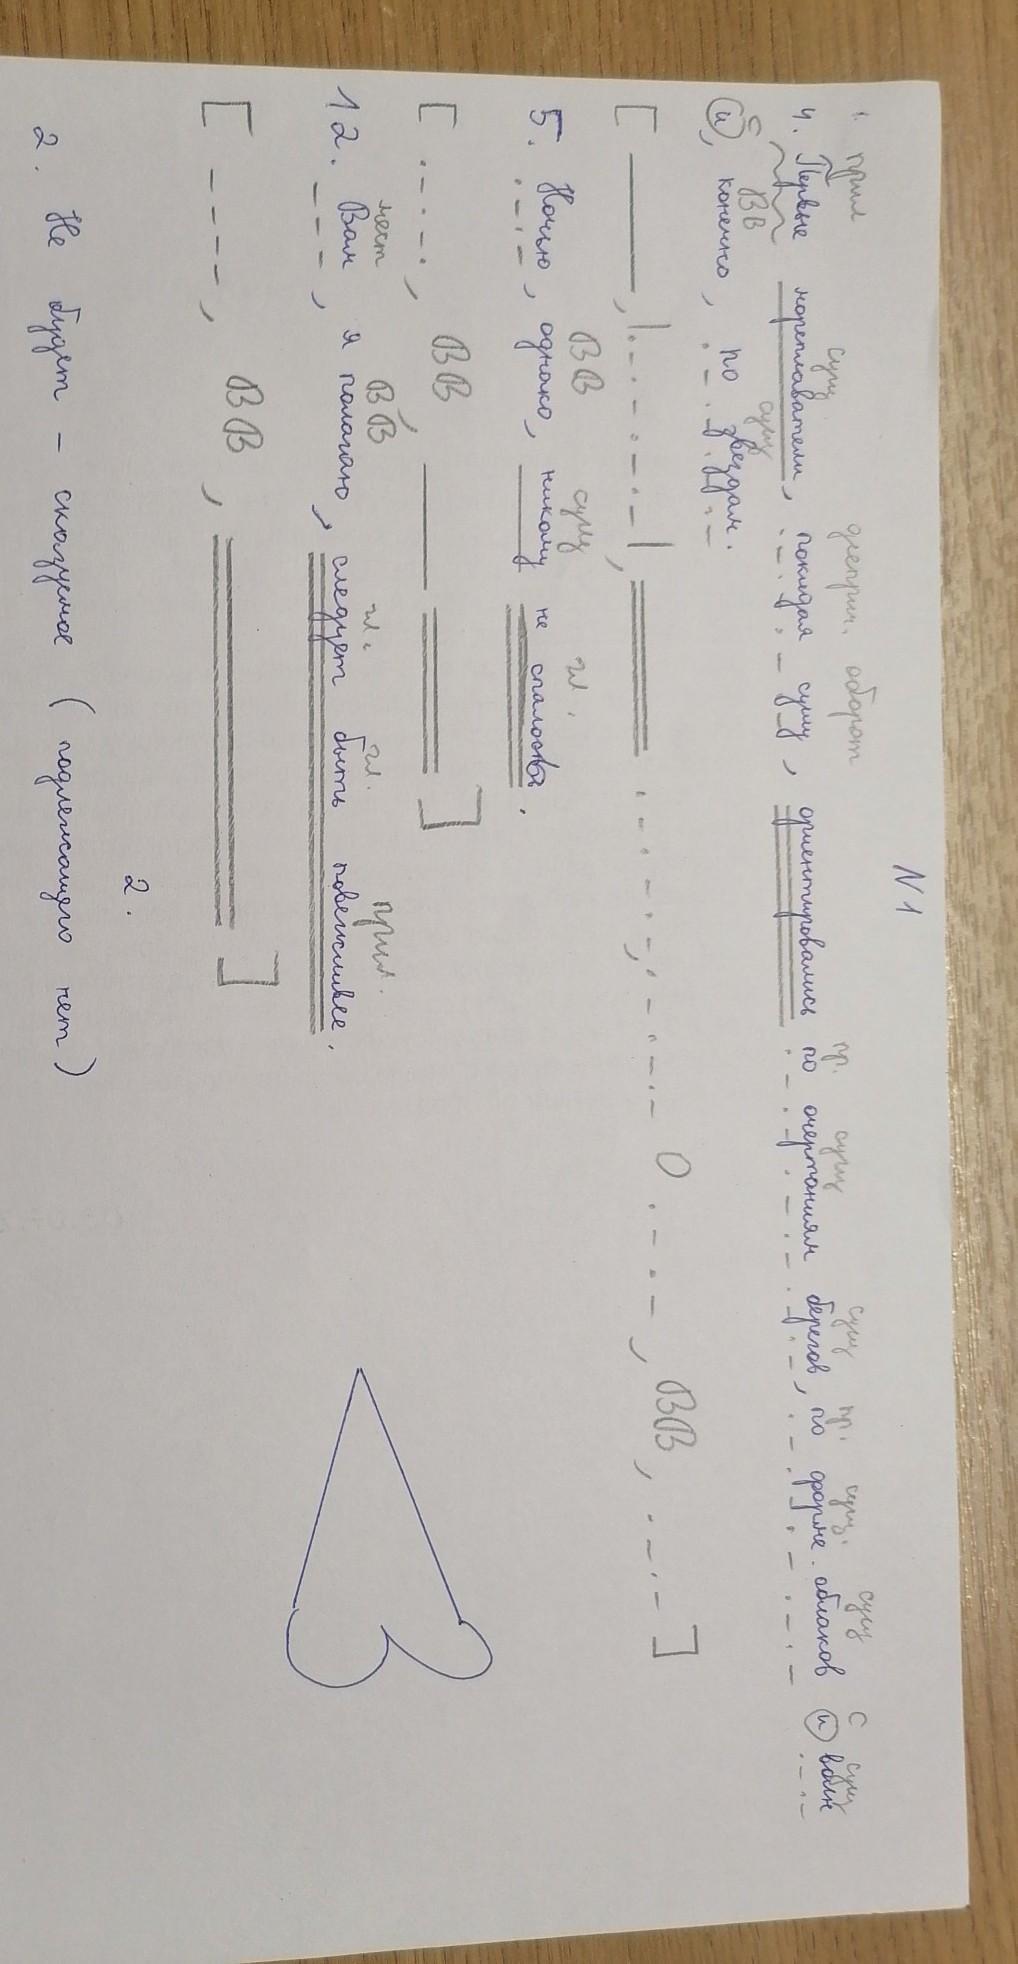 N1
1. прил сущ дееприч. оборот пр. сущ сущ пр. сущ. сущ с сущ
4. Первые мореплаватели, покидая сушу, ориентировались по очертаниям берегов, по форме облаков и волн
с ВВ сущ
и, конечно, по звёздам.
[ , | | , О , ВВ , ]
ВВ сущ гл.
5. Ночью, однако, никому не спалось.
[ , ВВ , ]
мест ВВ гл. гл. прил.
12. Вам, я полагаю, следует быть повежливее.
[ , ВВ , ]
2.
2. Не будет - сказуемое (подлежащего нет)